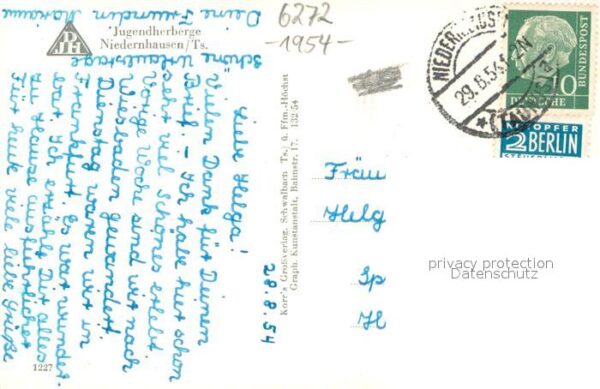 Jugendherberge
Niedernhausen/Ts.
6272
-1954-
NIEDERNHAUSEN
29.8.54
(TAUNUS)
10
DEUTSCHE
BUNDESPOST
NOTOPFER
2 BERLIN
STEUERMARKE
28.8.54
Liebe Helga!
Vielen Dank für Deinen
Brief. - Ich habe hier schon
sehr viel Schönes erlebt.
Vorige Woche sind wir nach
Wiesbaden gewandert
Dienstag waren wir in
Frankfurt. Es war wunder-
bar. Ich erzähle Dir alles
zu Hause ausführlicher
Für heute viele liebe Grüße
schöne Urlaubstage
Deine Freundin
Korr's Großverlag, Schwalbach (Ts.) ü. Ffm.-Höchst
Graph. Kunstanstalt, Bahnstr. 17. 132/54
Fräu
Helg
Sp
H
privacy protection
Datenschutz
1227